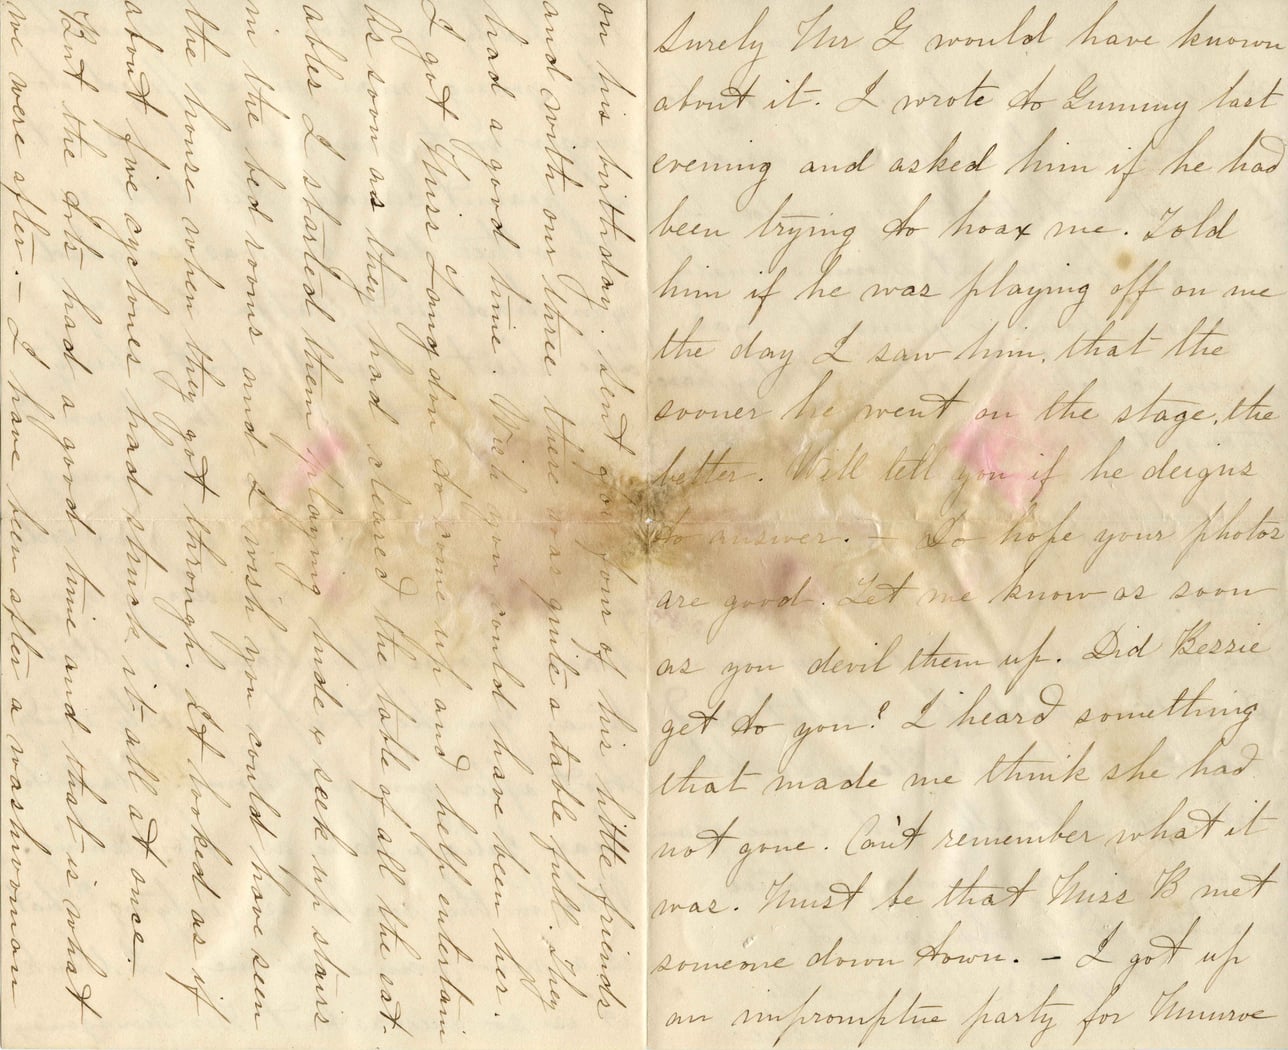 Surely Mr G would have known
about it. I wrote to Gummy last
evening and asked him if he had
been trying to hoax me. Told
him if he was playing off on me
the day I saw him, that the
sooner he went on the stage, the
better. Will tell you if he deigns
to answer. – Do hope your photos
are good. Let me know as soon
as you devil them up. Did Bessie
get to you? I heard something
that made me think she had
not gone. Can't remember what it
was. Must be that Miss B met
someone down town. – I got up
an impromptue party for Munroe
on his birthday. Sent for four of his little friends
and with our three there was quite a table full. They
had a good time. Wish you could have been here.
I got Miss Langdon to come up and help entertain
As soon as they had cleared the table of all the eat-
ables I started them playing hide & seek up stairs
in the bed rooms and I wish you could have seen
the house when they got through. It looked as if
about five cyclones had struck it all at once.
But the dits had a good time and that is what
we were after. – I have been after a washwoman